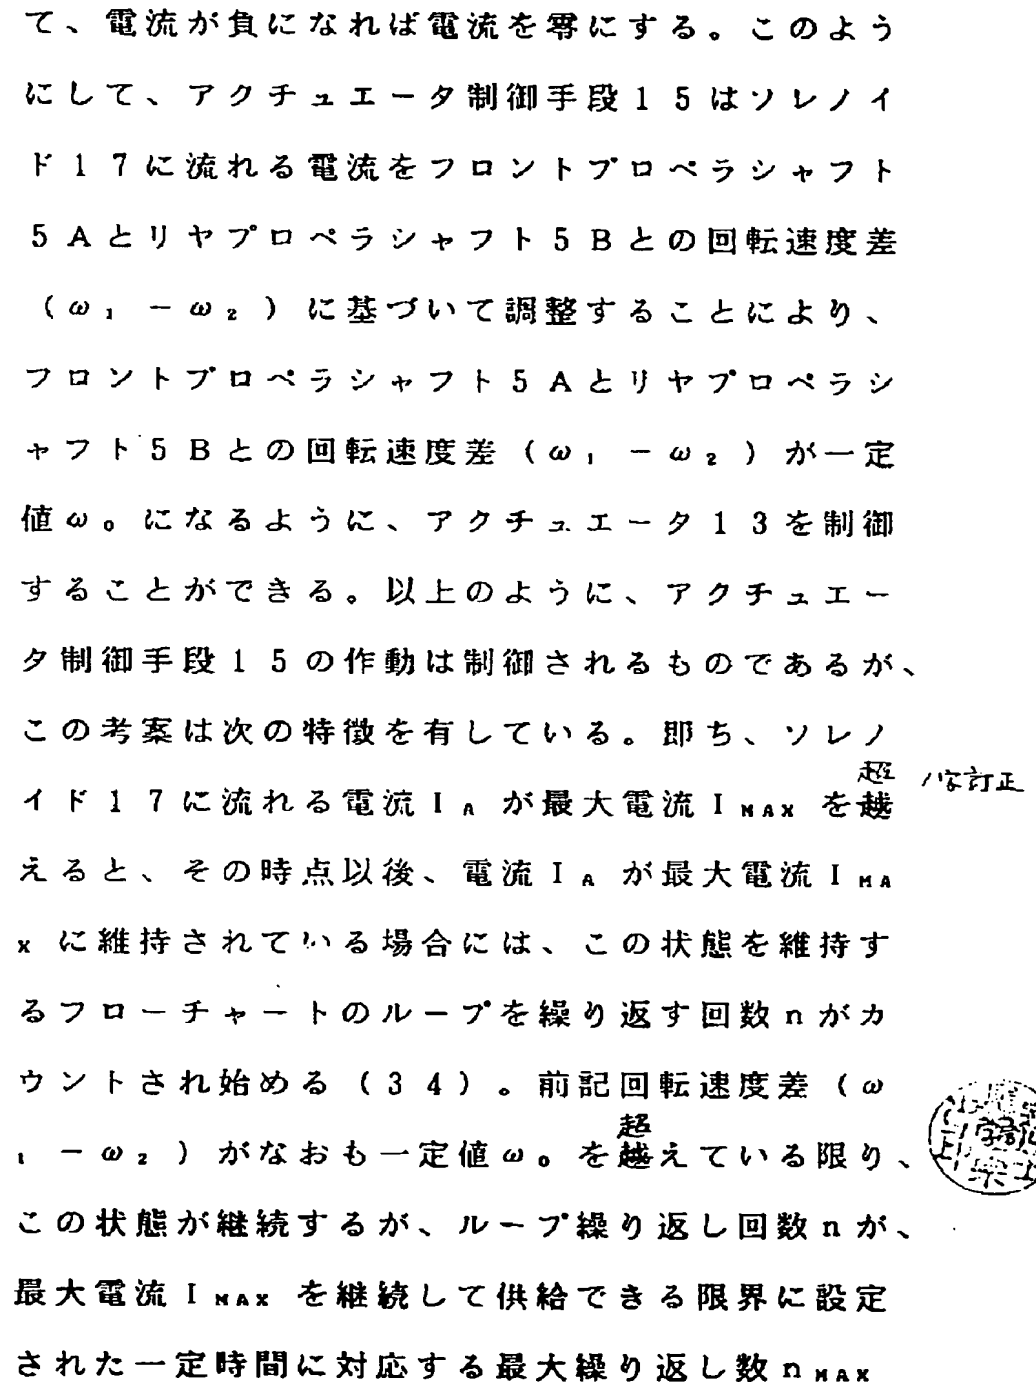 て、電流が負になれば電流を零にする。このよう
にして、アクチュエータ制御手段15はソレノイ
ド17に流れる電流をフロントプロペラシャフト
5Aとリヤプロペラシャフト5Bとの回転速度差
(ω₁ −ω₂ )に基づいて調整することにより、
フロントプロペラシャフト5Aとリヤプロペラシ
ャフト5Bとの回転速度差(ω₁ −ω₂ )が一定
値ω₀ になるように、アクチュエータ13を制御
することができる。以上のように、アクチュエー
タ制御手段15の作動は制御されるものであるが、
この考案は次の特徴を有している。即ち、ソレノ
超
イド17に流れる電流I_A が最大電流I_MAX を越
字訂正
えると、その時点以後、電流I_A が最大電流I_MA
X に維持されている場合には、この状態を維持す
るフローチャートのループを繰り返す回数nがカ
ウントされ始める(34)。前記回転速度差(ω
超
₁ −ω₂ )がなおも一定値ω₀ を越えている限り、
この状態が継続するが、ループ繰り返し回数nが、
最大電流I_MAX を継続して供給できる限界に設定
された一定時間に対応する最大繰り返し数n_MAX